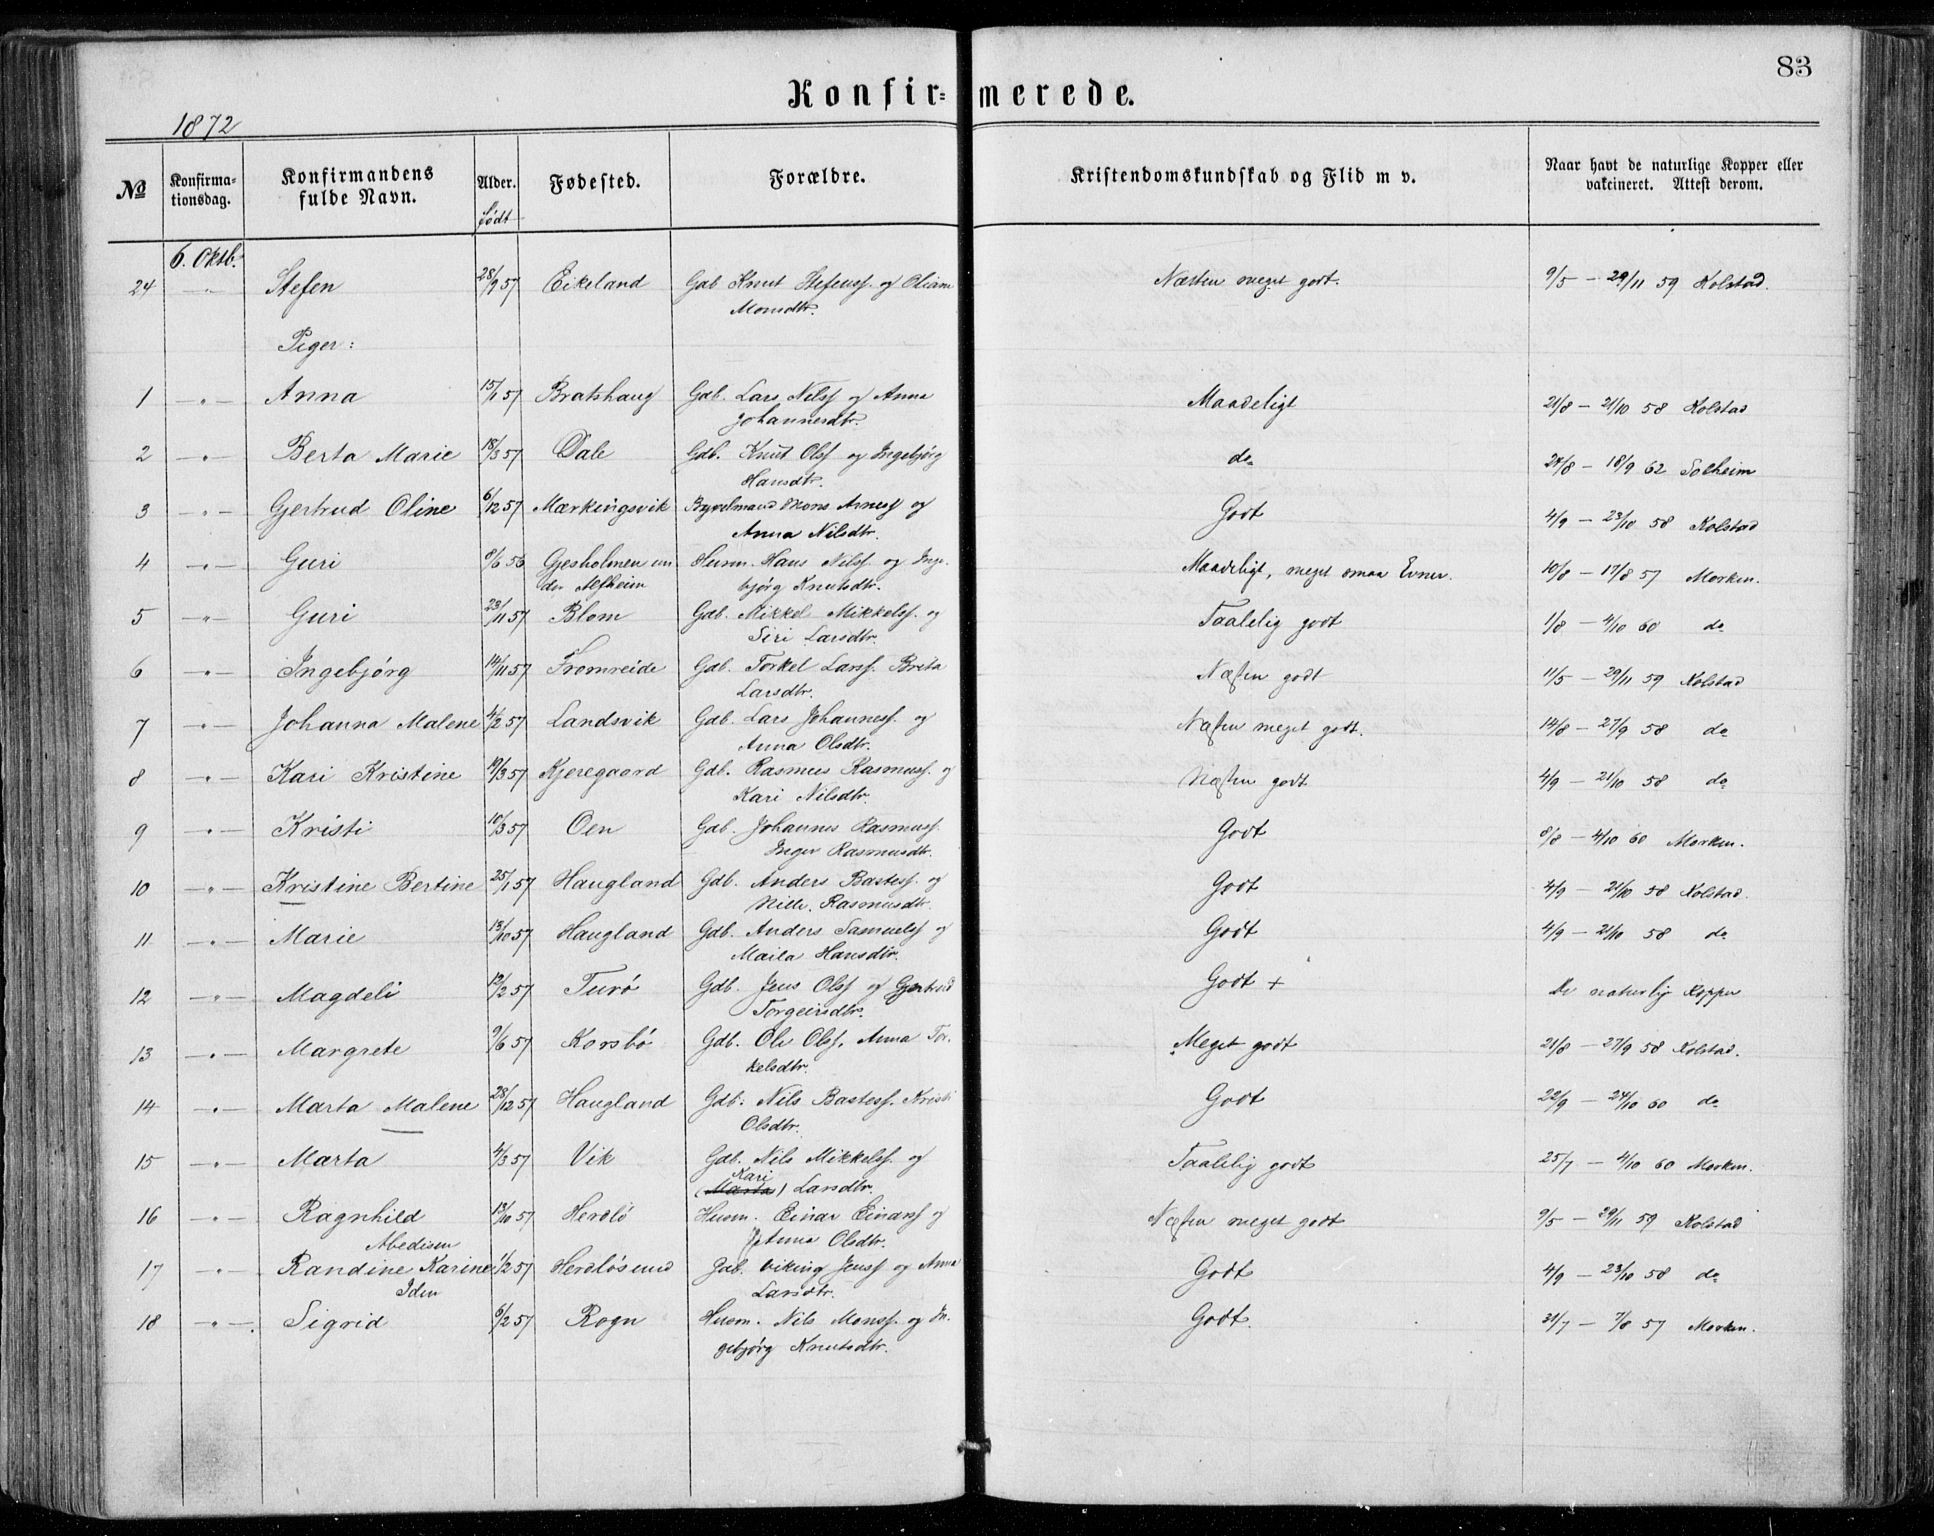 83
Konfir=merede.
1872
No Konfirmationsdag. Konfirmandens fulde Navn. Alder. Fødested. Forældre. Kristendomskundskab og Flid m v. Naar havt de naturlige Kopper eller vakcineret. Attest derom.
født
6. Oktb.
24 " Stefen 28/9 57 Eikeland Gdb Knut Stefenss. og Oliane Næsten meget godt. 9/5 – 29/11 59 Kolstad.
Monsdtr.
Piger:
1 " Anna 15/1 57 Bratshaug Gdb. Lars Nilss og Anna Maadeligt 21/8 – 21/10 58 Kolstad
Johannesdtr.
2 " Berta Marie 18/3 57 Dale Gdb. Knut Olss og Ingebjørg do 24/8 – 18/9 62 Solheim
Hansdtr.
3 " Gjertrud Oline 6/12 57 Mærkingsvik Mons Arness og Godt 4/9 – 23/10 58 Kolstad
Anna Nilsdtr.
4 " Guri 8/6 56 Gjesholmen un Husm. Hans Nilss og Inge- Maadeligt, meget smaa Evner. 10/8 – 17/8 57 Morken.
der Alfheim bjørg Knutsdtr.
5 " Guri 23/11 57 Blom Gdb. Mikkel Mikkelss. og Taalelig godt 1/8 – 4/10 60 do
Siri Larsdtr.
6 " Ingebjørg 14/11 57 Fromreide Gdb. Torkel Larss. Brita Næsten godt 11/5 – 29/11 59 Kolstad
Larsdtr.
7 " Johanna Malene 4/2 57 Landsvik Gdb. Lars Johanness. og Næsten meget godt. 14/8 – 27/9 58 do
Anna Olsdtr.
8 " Kari Kristine 19/3 57 Kjeregaard Gdb. Rasmus Rasmuss. og Næsten godt 4/9 – 21/10 58 do
Kari Nilsdtr.
9 " Kristi 10/3 57 Oen Gdb. Johannes Rasmuss. Godt 8/8 – 4/10 60 Morken.
Inger Rasmusdtr.
10 " Kristine Bertine 25/1 57 Haugland Gdb. Anders Bastess. og Godt 4/9 – 21/10 58 Kolstad.
Nille. Rasmusdtr.
11 " Marie 13/10 57 Haugland Gdb. Anders Samuelss og Godt 4/9 – 21/10 58 do
Maila Hansdtr.
12 " Magdeli 12/2 57 Turø Gdb. Jens Olss og Gjertrud Godt + De naturlig Kopper
Torgeirsdtr.
13 " Margrete 9/6 57 Korsbø Gdb. Ole Olss. Anna Tor- Meget godt 21/8 – 27/9 58 Kolstad.
kelsdtr.
14 " Marta Malene 28/12 57 Haugland Gdb. Nils Bastess. Kristi Godt 22/9 – 24/10 60 do
Olsdtr.
15 " Marta 4/3 57 Vik Gdb. Nils Mikkelss. og Taalelig godt 25/7 – 4/10 60 Morken.
Kari
(Marta) Larsdtr.
16 " Ragnhild 13/10 57 Herdlø Husm. Einar Einarss og Næsten meget godt 9/5 – 29/11 59 Kolstad
Abedisen Anna Olsdtr.
17 " Randine Karine 1/2 57 Herdløsund Gdb. Viking Jenss og Anna Godt 4/9 – 23/10 58 do
Iden Larsdtr.
18 " Sigrid 6/2 57 Rogn Husm. Nils Monss. og In- Godt. 31/7 – 7/8 57 Morken.
gebjørg Knutsdtr.